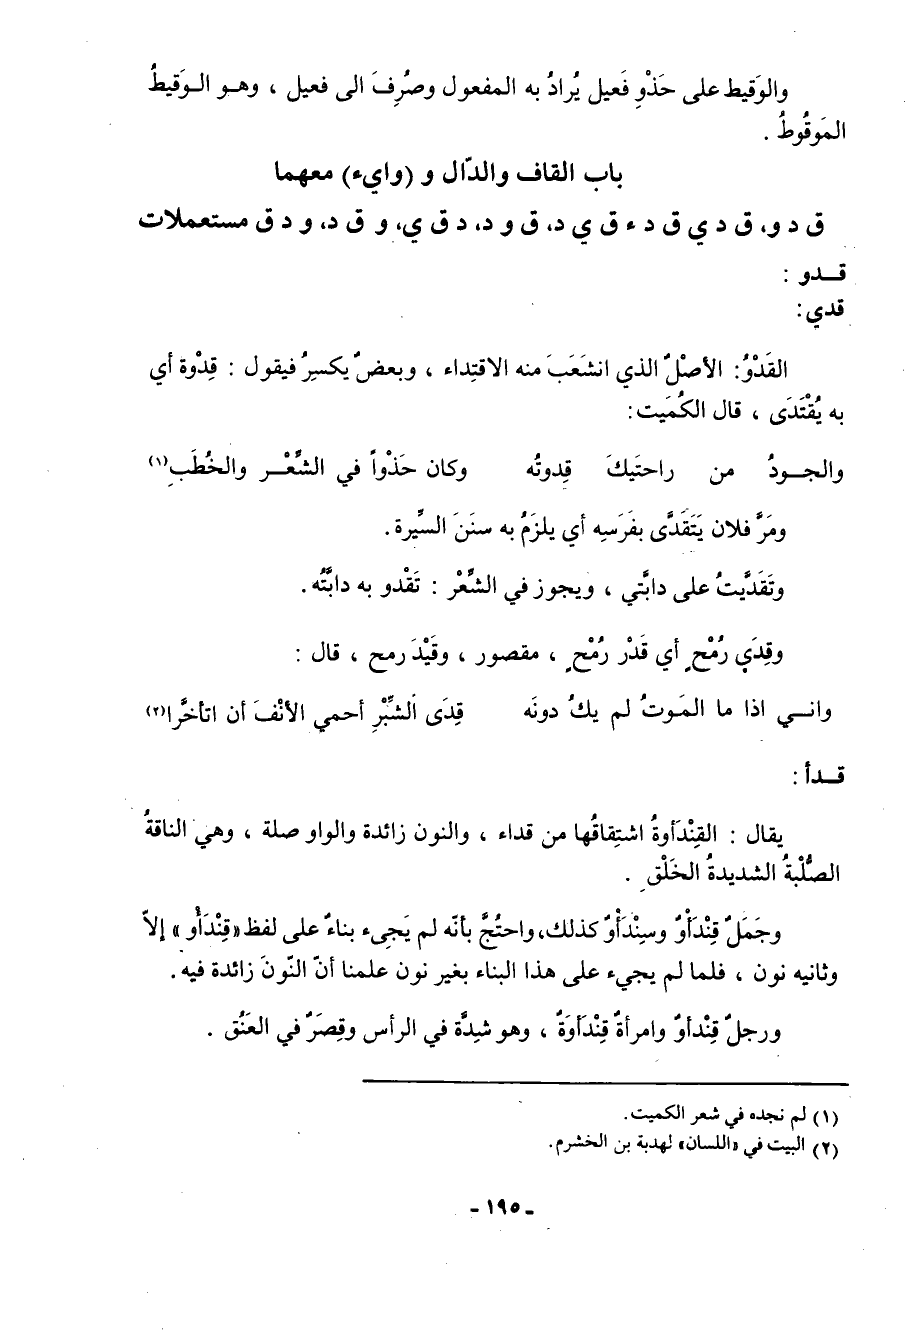 والوَقيط على حَذْوِ فَعيل يُرادُ به المفعول وصُرِفَ الى فعيل ، وهـو الـوَقيطُ
المَوقُوطُ .
باب القاف والدّال و (وايء) معهما
ق د و، ق د ي ق د ء ق ي د، ق و د، د ق ي، و ق د، و د ق مستعملات
قــدو :
قدي:
القَدْوُ: الأصْلُ الذي انشَعَبَ منه الاقتِداء ، وبعضٌ يكسِرُ فيقول : قِدْوة أي
به يُقْتَدَى ، قال الكُمَيت:
والجــودُ من راحتَيكَ قِدوتُه وكان حَذْواً في الشِّعْــر والخُطَبِ(١)
ومَرَّ فلان يَتَقَدَّى بفَرَسِه أي يلزَمُ به سنَنَ السِّيرة.
وتَقَدَّيتُ على دابَّتي ، ويجوز في الشِّعْر : تَقْدو به دابَّتُه.
وقِدَي رُمْحٍ أي قَدْر رُمْحٍ ، مقصور ، وقَيْدَ رمح ، قال :
وانــي اذا ما المَوتُ لم يكُ دونَه قِدَى الشِّبْرِ أحمي الأنْفَ أن اتأخَّرا(٢)
قــدأ :
يقال : القِنْدَأوةُ اشتِقاقُها من قداء ، والنون زائدة والواو صلة ، وهي الناقةُ
الصُّلْبةُ الشديدةُ الخَلْقِ .
وجَمَلٌ قِنْدَأوٌ وسِنْدَأوٌ كذلك، واحتُجَّ بأنّه لم يَجِىء بناءٌ على لفظ «قِنْدَأْو» إلاّ
وثانيه نون ، فلما لم يجيء على هذا البناء بغير نون علمنا أنّ النّونَ زائدة فيه.
ورجلٌ قِنْدأوٌ وامرأةٌ قِنْدَأوَةٌ ، وهو شِدَّة في الرأس وقِصَرٌ في العَنُق .
(١) لم نجده في شعر الكميت.
(٢) البيت في «اللسان» لهدبة بن الخشرم.
- ١٩٥ -